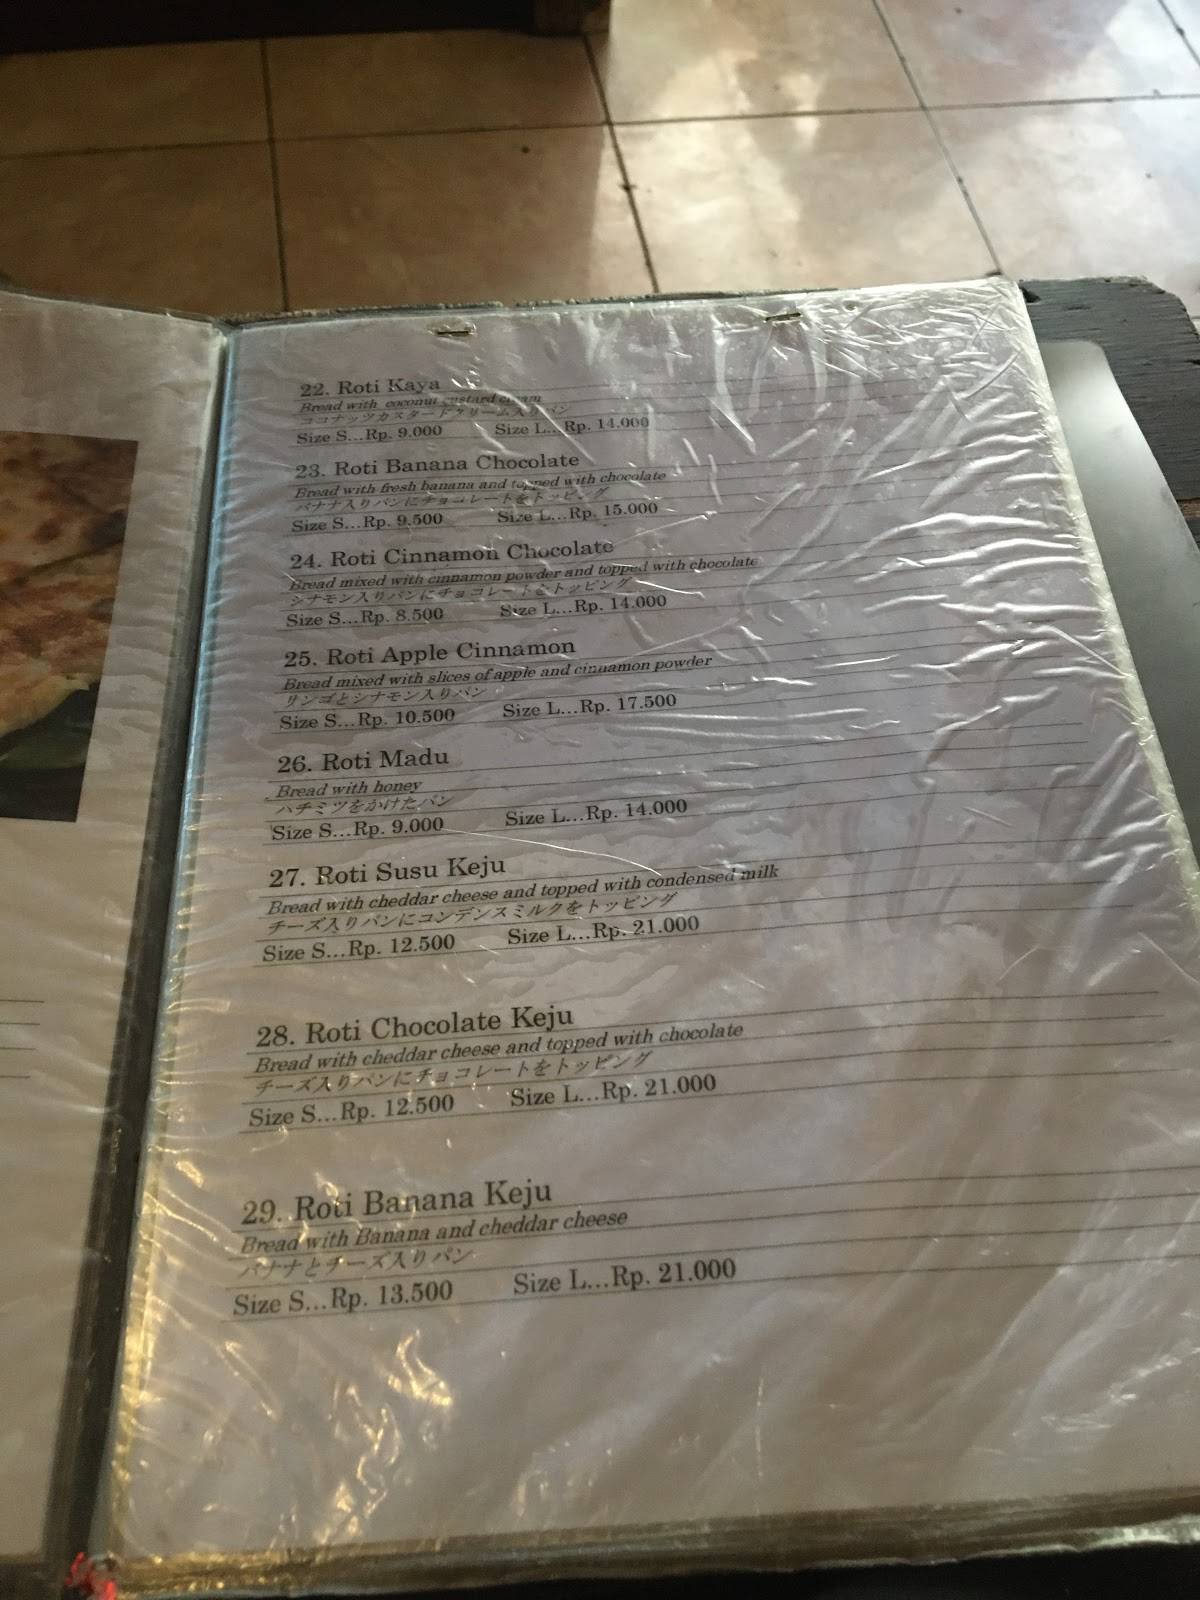 22. Roti Kaya
Bread with coconut custard cream
ココナッツカスタードクリーム入りパン
Size S...Rp. 9.000 Size L...Rp. 14.000
23. Roti Banana Chocolate
Bread with fresh banana and topped with chocolate
バナナ入りパンにチョコレートをトッピング
Size S...Rp. 9.500 Size L...Rp. 15.000
24. Roti Cinnamon Chocolate
Bread mixed with cinnamon powder and topped with chocolate
シナモン入りパンにチョコレートをトッピング
Size S...Rp. 8.500 Size L...Rp. 14.000
25. Roti Apple Cinnamon
Bread mixed with slices of apple and cinnamon powder
リンゴとシナモン入りパン
Size S...Rp. 10.500 Size L...Rp. 17.500
26. Roti Madu
Bread with honey
ハチミツをかけたパン
Size S...Rp. 9.000 Size L...Rp. 14.000
27. Roti Susu Keju
Bread with cheddar cheese and topped with condensed milk
チーズ入りパンにコンデンスミルクをトッピング
Size S...Rp. 12.500 Size L...Rp. 21.000
28. Roti Chocolate Keju
Bread with cheddar cheese and topped with chocolate
チーズ入りパンにチョコレートをトッピング
Size S...Rp. 12.500 Size L...Rp. 21.000
29. Roti Banana Keju
Bread with Banana and cheddar cheese
バナナとチーズ入りパン
Size S...Rp. 13.500 Size L...Rp. 21.000